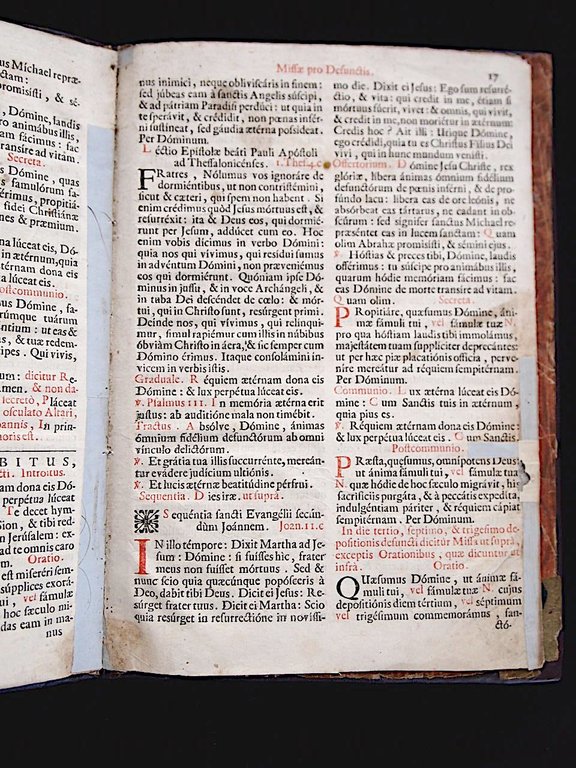 us Michael repræ-
ctam:
promisisti, & sé-
Dómine, laudis
ro animábus illis,
am fácimus: fac
transíre ad vitam.
Secreta.
s Dómine, quas
s famulórum fá-
óstias, propitiá-
s fidei Christiánæ
nes & præmium.
na lúceat eis, Dó-
in ætérnum, quia
térnam dona eis
lúceat eis.
ostcommunio.
us Dómine, fa-
rúmque tuárum
éntium: ut eas &
s, & tuæ redem-
ipes. Qui vivis,
um: dicitur Re-
men. & non da-
secretò, Pláceat
osculato Altari,
oánnis, In prin-
oris est.
BITUS,
cti. Introitus.
am dona eis Dó-
perpétua lúceat
Te decet hym-
Sion, & tibi red-
n Jerúsalem: ex-
ad te omnis caro
m.
Oratio.
est miseréri sem-
súpplices exorá-
i, vel fámulæ
hoc sæculo mi-
das eam in ma-
nus
Missæ pro Defunctis.
17
nus inimíci, neque obliviscáris in finem:
sed júbeas eam à sanctis Angelis súscipi,
& ad pátriam Paradísi perdúci: ut quia in
te sperávit, & crédidit, non pœnas infér-
ni sustíneat, sed gáudia ætérna possídeat.
Per Dóminum.
Léctio Epístolæ beáti Pauli Apóstoli
ad Thessalonicénses. 1. Thess. 4. c
FRatres, Nólumus vos ignoráre de
dormiéntibus, ut non contristémini,
sicut & cæteri, qui spem non habent. Si
enim crédimus quòd Jesus mórtuus est, &
resurréxit: ita & Deus eos, qui dormié-
runt per Jesum, addúcet cum eo. Hoc
enim vobis dícimus in verbo Dómini:
quia nos qui vívimus, qui resídui sumus
in advéntum Dómini, non præveniémus
eos qui dormiérunt. Quóniam ipse Dó-
minus in jussu, & in voce Archángeli, &
in tuba Dei descéndet de cœlo: & mór-
tui, qui in Christo sunt, resúrgent primi.
Deinde nos, qui vívimus, qui relínqui-
mur, simul rapiémur cum illis in núbibus
óbviàm Christo in áera, & sic semper cum
Dómino érimus. Itaque consolámini in-
vicem in verbis istis.
Graduale. Réquiem ætérnam dona eis
Dómine: & lux perpétua lúceat eis.
℣. Psalmus 111. In memória ætérna erit
justus: ab auditióne mala non timébit.
Tractus. Absólve, Dómine, ánimas
ómnium fidélium defunctórum ab omni
vínculo delictórum.
℣. Et grátia tua illis succurrénte, mereán-
tur evádere judícium ultiónis.
℣. Et lucis ætérnæ beatitúdine pérfrui.
Sequentia. Dies iræ. ut suprà.
Sequéntia sancti Evangélii secún-
dùm Joánnem. Joan. 11. c
IN illo témpore: Dixit Martha ad Je-
sum: Dómine: si fuísses hic, frater
meus non fuísset mórtuus. Sed &
nunc scio quia quæcúnque popósceris à
Deo, dabit tibi Deus. Dicit ei Jesus: Re-
súrget frater tuus. Dicit ei Martha: Scio
quia resúrget in resurrectióne in novíssi-
mo die. Dixit ei Jesus: Ego sum resurré-
ctio, & vita: qui credit in me, étiam si
mórtuus fúerit, vivet: & omnis, qui vivit,
& credit in me, non moriétur in ætérnum:
Credis hoc? Ait illi: Utique Dómine,
ego crédidi, quia tu es Christus Fílius Dei
vivi, qui in hunc mundum venísti.
Offertorium. Dómine Jesu Christe, rex
glóriæ, líbera ánimas ómnium fidélium
defunctórum de pœnis inférni, & de pro-
fúndo lacu: líbera eas de ore leónis, ne
absórbeat eas tártarus, ne cadant in ob-
scúrum: sed sígnifer sanctus Míchael re-
præséntet eas in lucem sanctam: Quam
olim Abrahæ promisísti, & sémini ejus.
℣. Hóstias & preces tibi, Dómine, laudis
offérimus: tu súscipe pro animábus illis,
quarum hódie memóriam fácimus: fac
eas Dómine de morte transíre ad vitam.
Quam olim. Secreta.
PRopitiáre, quæsumus Dómine, áni-
mæ fámuli tui, vel fámulæ tuæ N.
pro qua hóstiam laudis tibi immolámus,
majestátem tuam supplíciter deprecántes:
ut per hæc piæ placatiónis offícia, perve-
níre mereátur ad réquiem sempitérnam.
Per Dóminum.
Communio. Lux ætérna lúceat eis Dó-
mine: Cum Sanctis tuis in ætérnum,
quia pius es.
℣. Réquiem ætérnam dona eis Dómine:
& lux perpétua lúceat eis. Cum Sanctis.
Postcommunio.
PRæsta, quæsumus, omnípotens Deus:
ut ánima fámuli tui, vel fámulæ tuæ
N. quæ hódie de hoc sæculo migrávit, his
sacrifíciis purgáta, & à peccátis expedíta,
indulgéntiam páriter, & réquiem cápiat
sempitérnam. Per Dóminum.
In die tertio, septimo, & trigesimo de-
positionis defuncti dicitur Missa ut suprà,
exceptis Orationibus, quæ dicuntur ut
infrà. Oratio.
QUæsumus Dómine, ut ánimæ fá-
muli tui, vel fámulæ tuæ N. cujus
depositiónis diem tértium, vel séptimum
vel trigésimum commemorámus, san-
ctó-